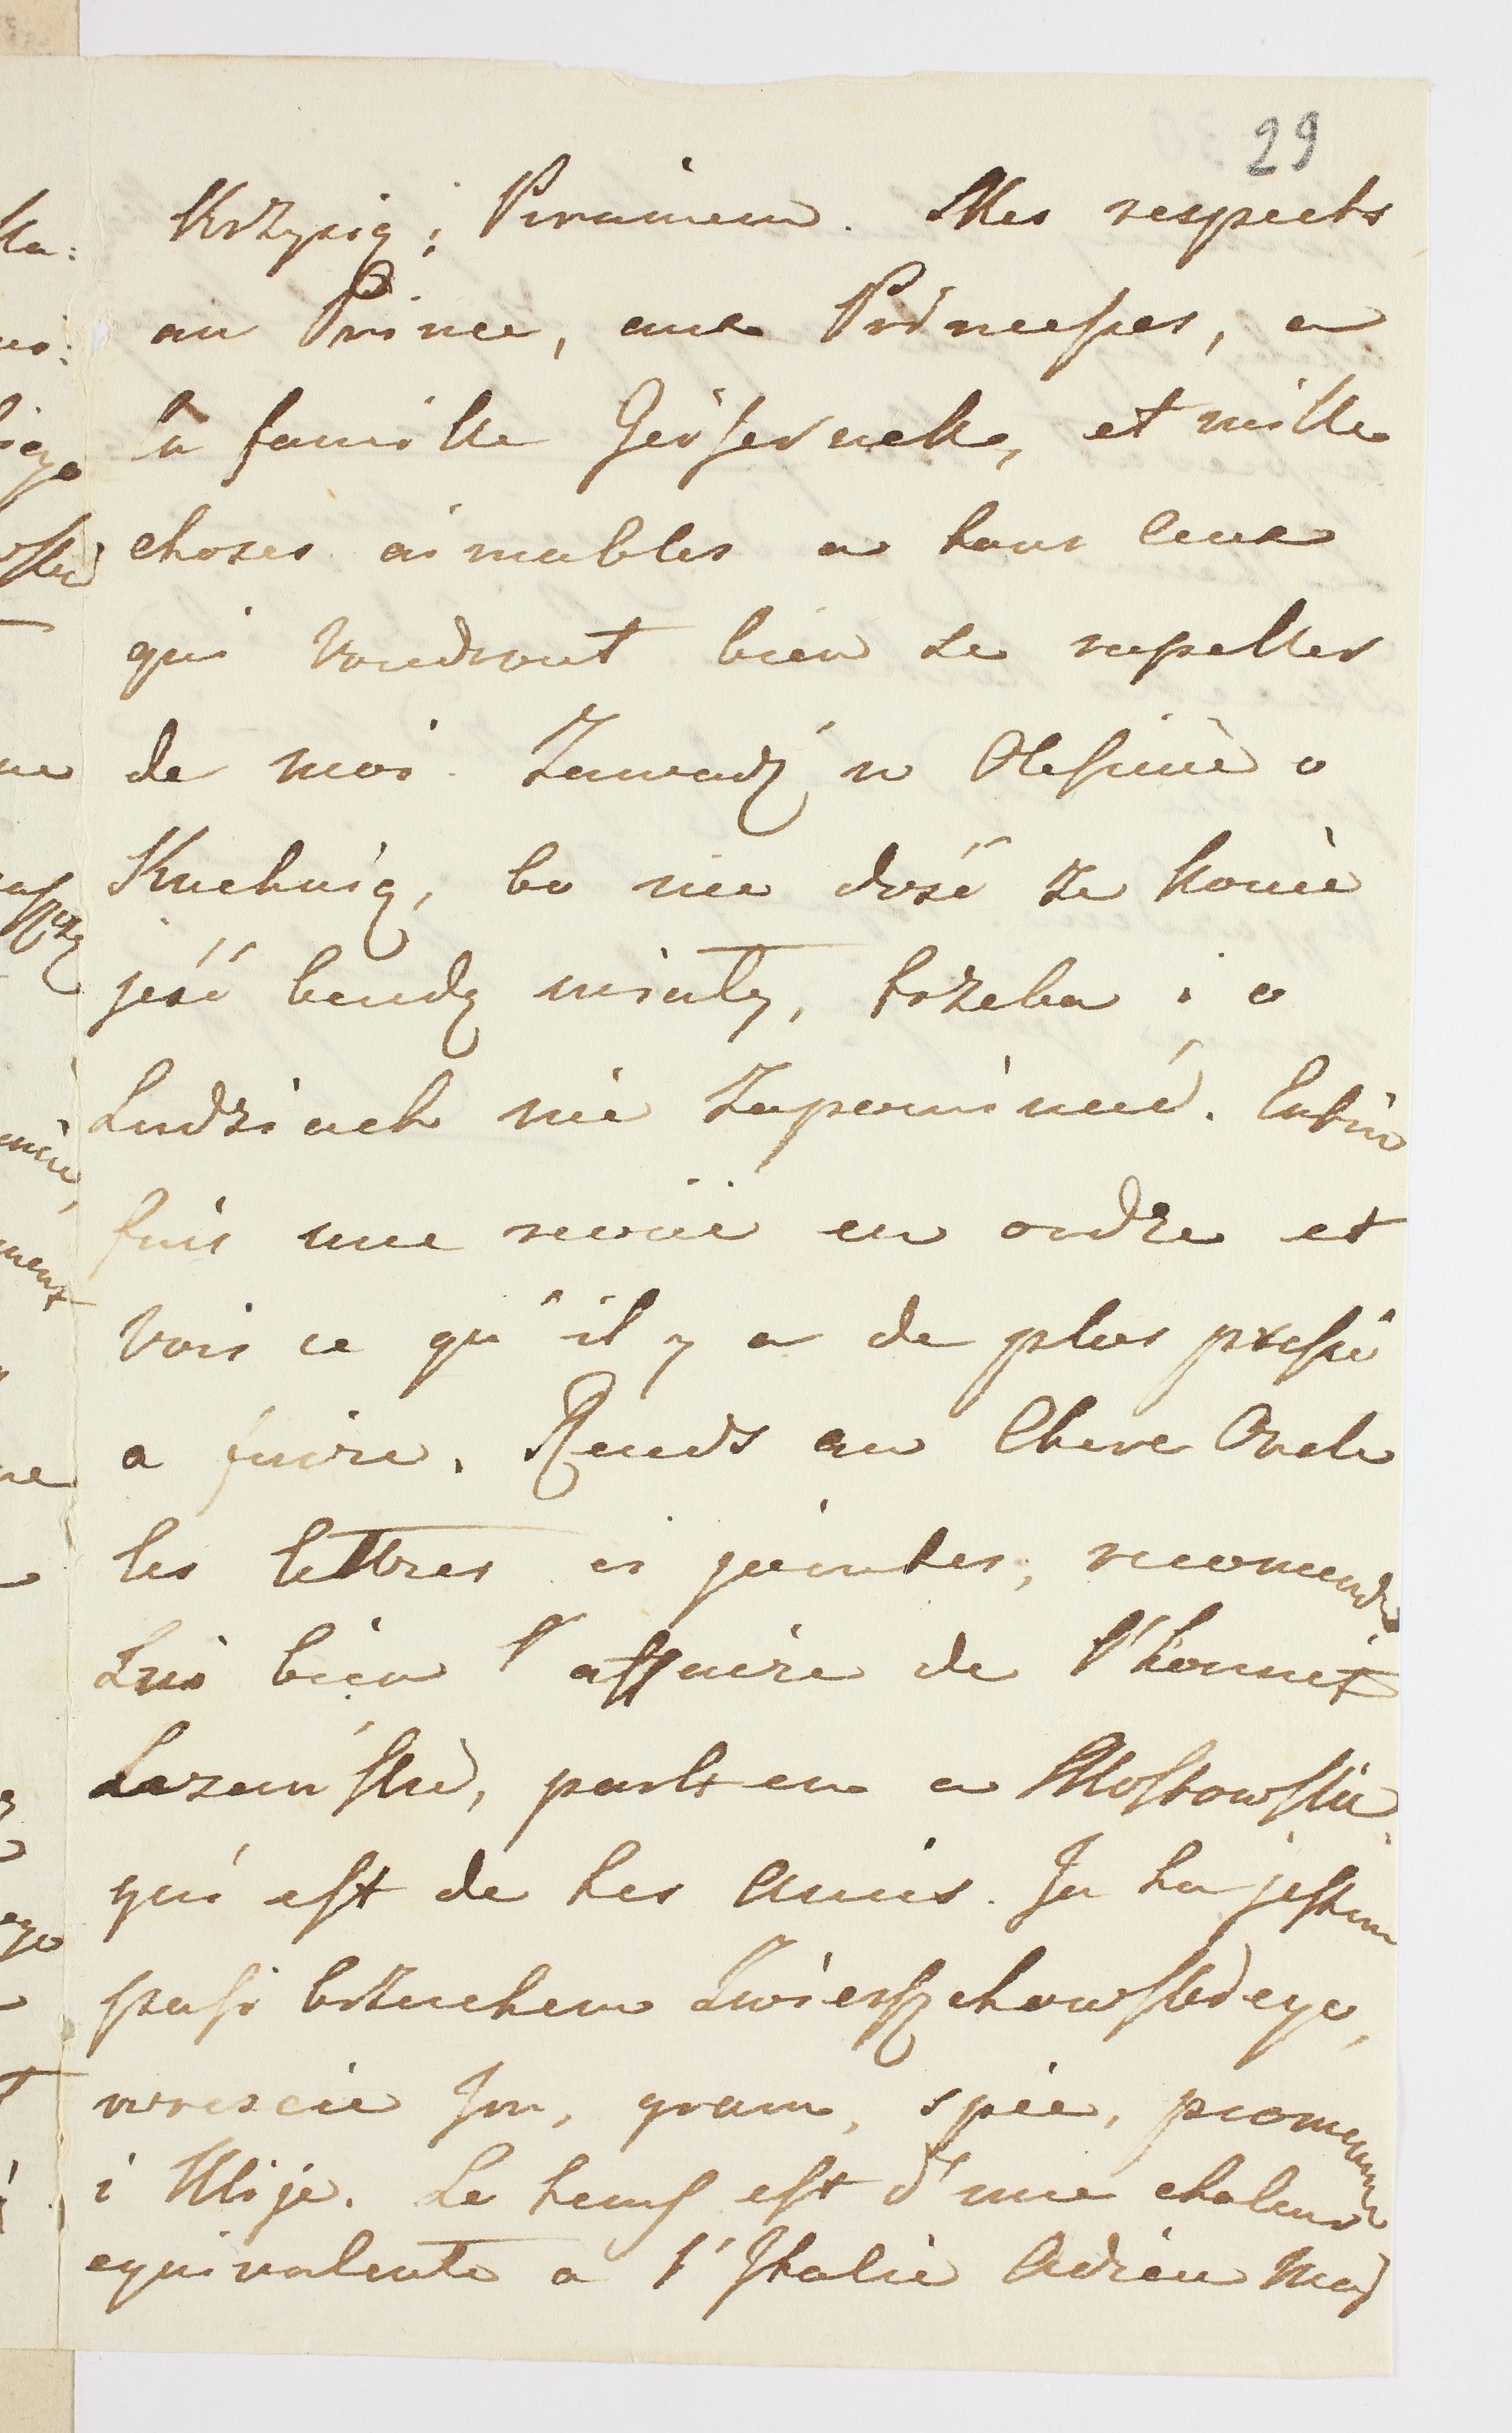 29
Krzysią i Piramem. Mes respects
au Prince, aux Princesses, a
la famille et mille
choses aimables a tous ceux
qui voudront bien se rapeller
de moi. Zawadź w Olesinie o
Kuchnią, bo nie dość ze konie
jeść bendą miały, trzeba i o
Ludziach nie zapominać. Enfin
fais une revüe en ordre et
vois ce qu'il y a de plus pressé
a faire. Rends au Chere Oncle
les lettres ci jointes, recomende
Lui bien l'affaire de l'honnet
parles en a Mostowski
qui est de tes Amis. Ja tu jestem
pasi brzuchem
wreszcie Jm, gram, śpie,
i Klije. Le tems est d'une chaleur
equivalente a l'Italie Adieu Mas